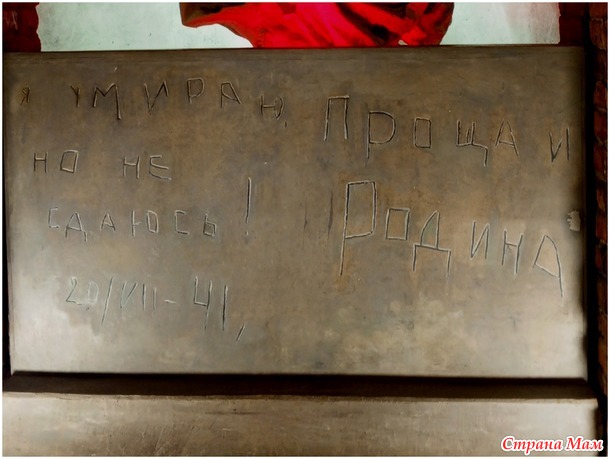 Я УМИРАЮ,
НО НЕ
СДАЮСЬ!
20/VII-41,
ПРОЩАЙ
РОДИНА
Страна Мам